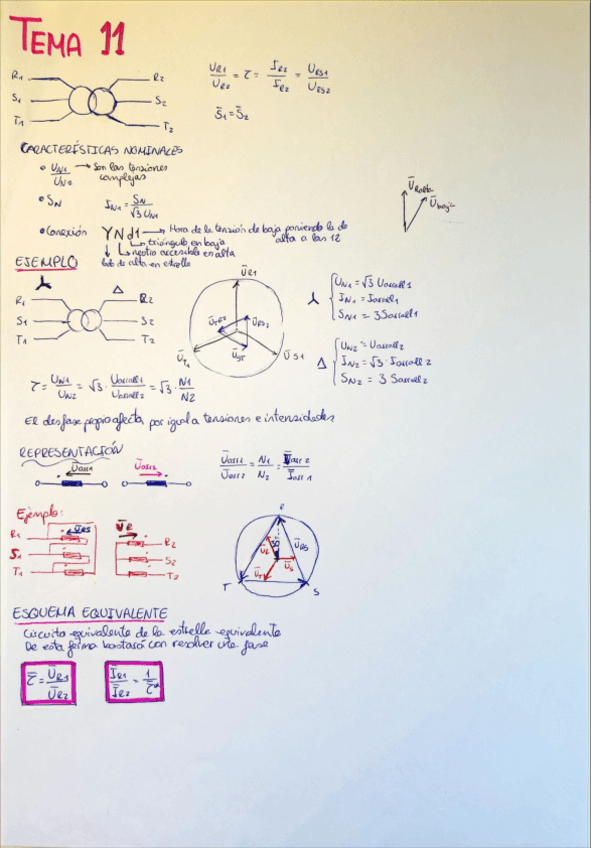 TEMA 11
R1 R2
S1 S2
T1 T2
U̅R1/U̅R2 = τ = I̅R2/I̅R2 = U̅RS1/U̅RS2
S̅1 = S̅2
CARACTERÍSTICAS NOMINALES
• UN1/UN2 → Son las tensiones complejas
• SN IN1 = SN/√3 UN1
• Conexión YNd1 → Hora de la tensión de baja poniendo la de alta a las 12
triángulo en baja
neutro accesible en alta
lado de alta en estrella
U̅Ralta
U̅baja
EJEMPLO
R1 R2
S1 S2
T1 T2
U̅R1
U̅T1
U̅S1
UN1 = √3 Uarroll1
IN1 = Iarroll1
SN1 = 3 Sarroll1
Δ
UN2 = Uarroll2
IN2 = √3 · Iarroll2
SN2 = 3 Sarroll2
τ = UN1/UN2 = √3 · Uarroll1/Uarroll2 = √3 · N1/N2
El desfase propio afecta por igual a tensiones e intensidades
REPRESENTACIÓN
U̅arr1 U̅arr2
U̅arr1/U̅arr2 = N1/N2 = I̅arr2/I̅arr1
Ejemplo:
U̅RS U̅R
R1 R2
S1 S2
T1 T2
R
30°
U̅R U̅RS
U̅T U̅S
T S
ESQUEMA EQUIVALENTE
Circuito equivalente de la estrella equivalente
De esta forma bastará con resolver una fase
τ̅ = U̅R1/U̅R2
I̅R1/I̅R2 = 1/τ̅*